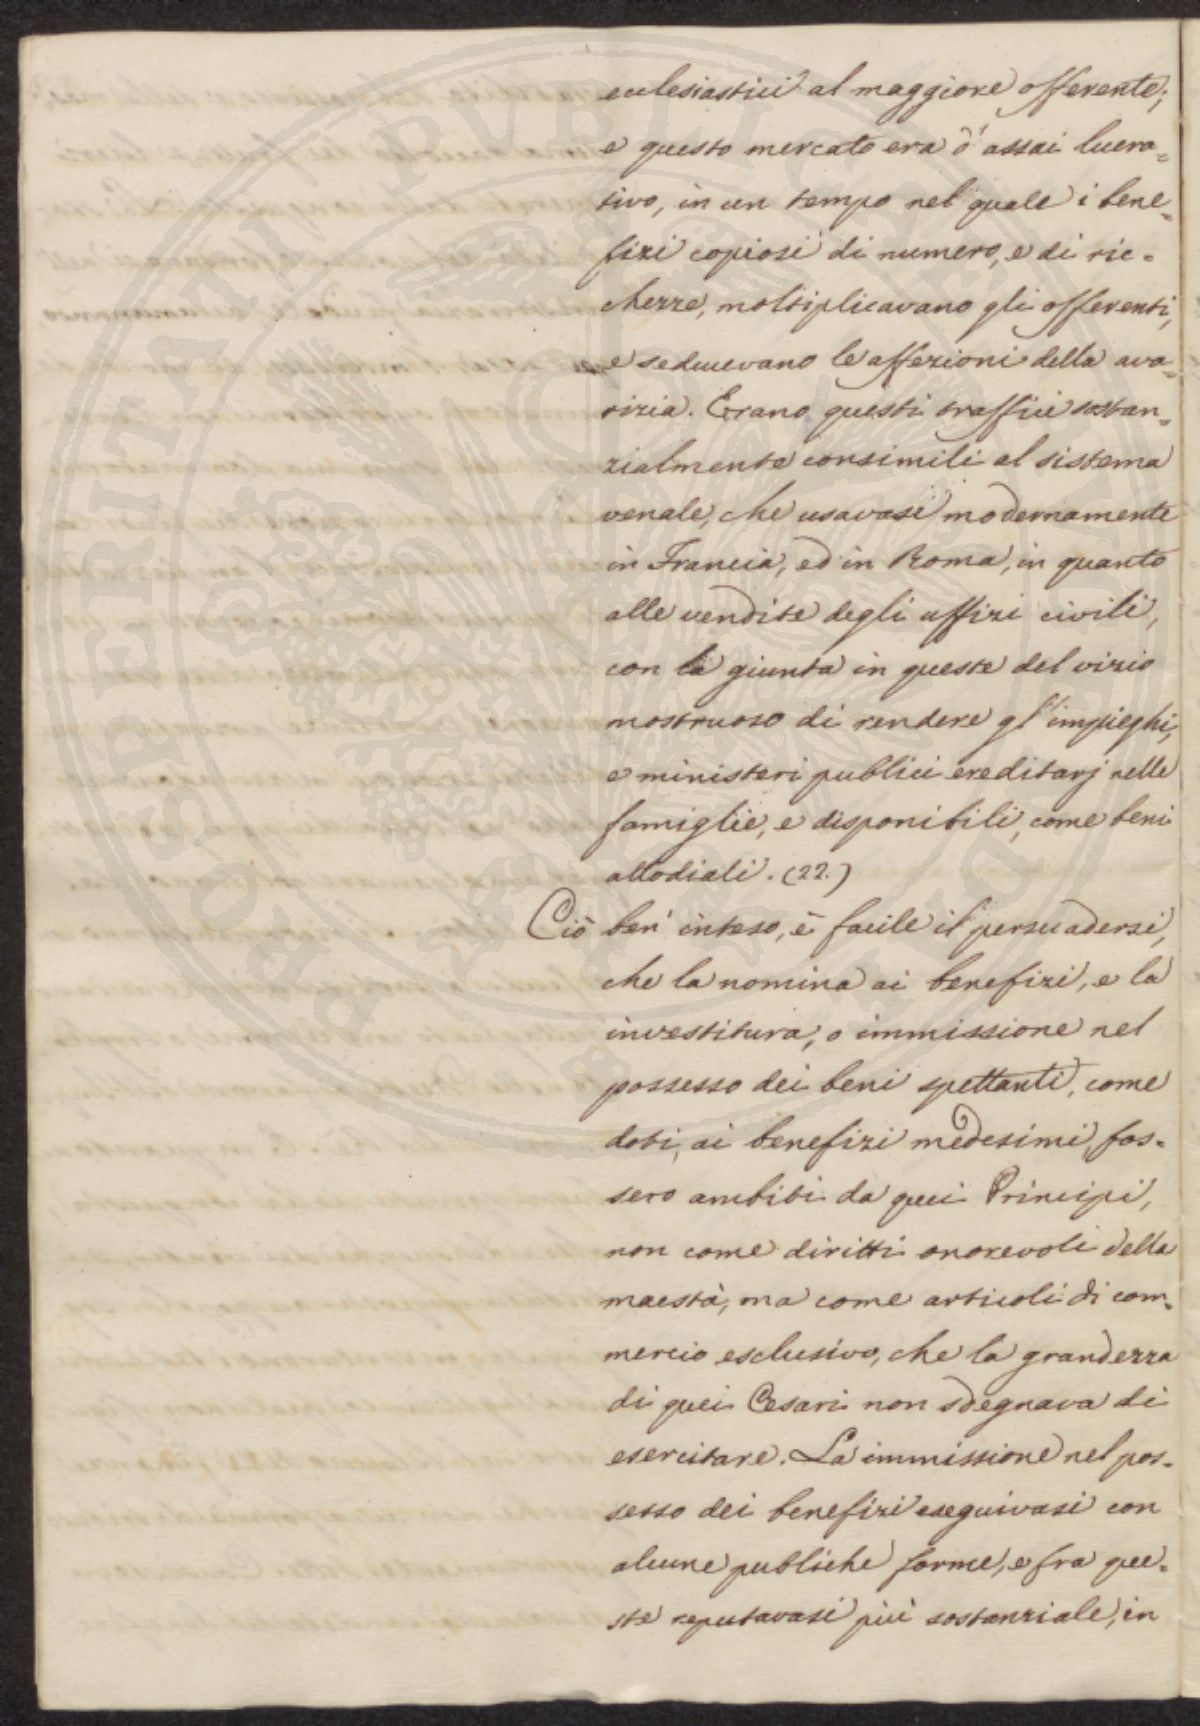 ecclesiastici al maggiore offerente;
e questo mercato era d' assai lucra=
tivo, in un tempo nel quale i bene=
fizi copiosi di numero, e di ric=
chezze, moltiplicavano gli offerenti,
e seducevano le affezioni della ava=
rizia. Erano questi traffici sostan=
zialmente consimili al sistema
venale, che usavasi modernamente
in Francia, ed in Roma, in quanto
alle vendite degli uffizi civili,
con la giunta in queste del vizio
mostruoso di rendere gl' impieghi,
e ministeri publici ereditarj nelle
famiglie, e disponibili, come beni
allodiali. (22.)
Ciò ben' inteso, è facile il persuadersi,
che la nomina ai benefizi, e la
investitura, o immissione nel
possesso dei beni spettanti, come
doti, ai benefizi medesimi, fos=
sero ambiti da quei Principi,
non come diritti onorevoli della
maestà, ma come articoli di com=
mercio esclusivo, che la grandezza
di quei Cesari non sdegnava di
esercitare. La immissione nel pos=
sesso dei benefizi eseguivasi con
alcune publiche forme, e fra que=
ste reputavasi più sostanziale, in
PROSPERITATI PVBLICAE AVGENDAE